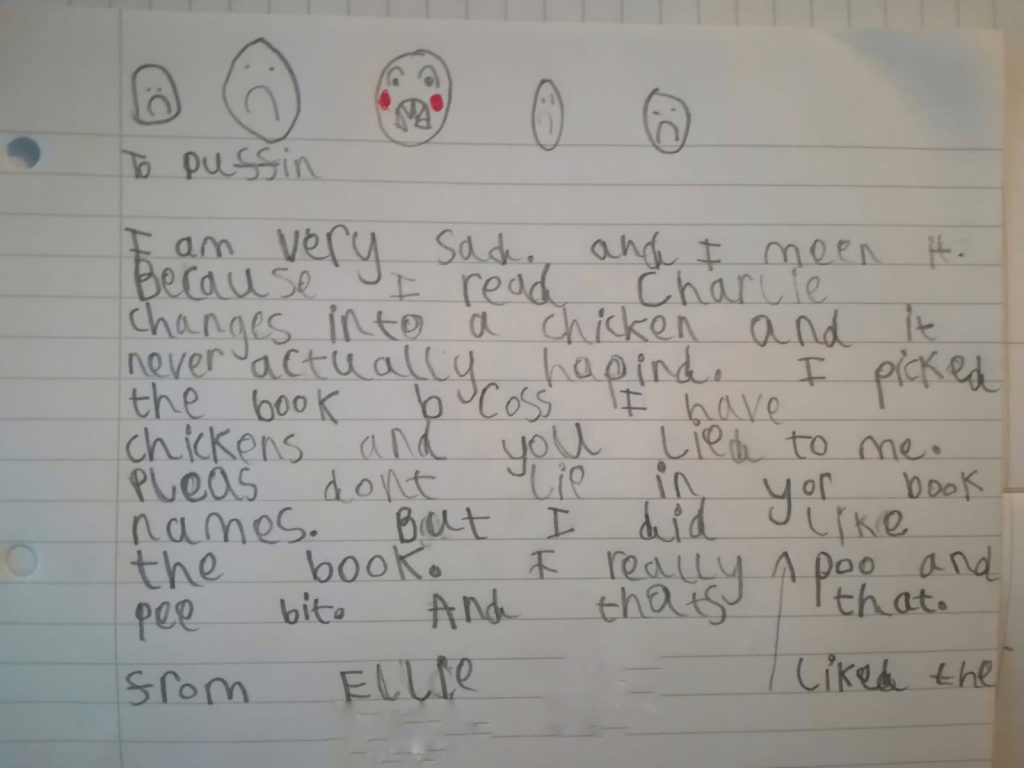 To puffin
I am very sad. and I meen it.
Because I read Charlie
changes into a chicken and it
never actually hapind. I picked
the book b coss I have
chickens and you lied to me.
pleas dont lie in yor book
names. But I did like
the book. I really ^ poo and
pee bit. And thats that.
from ELLIE liked the